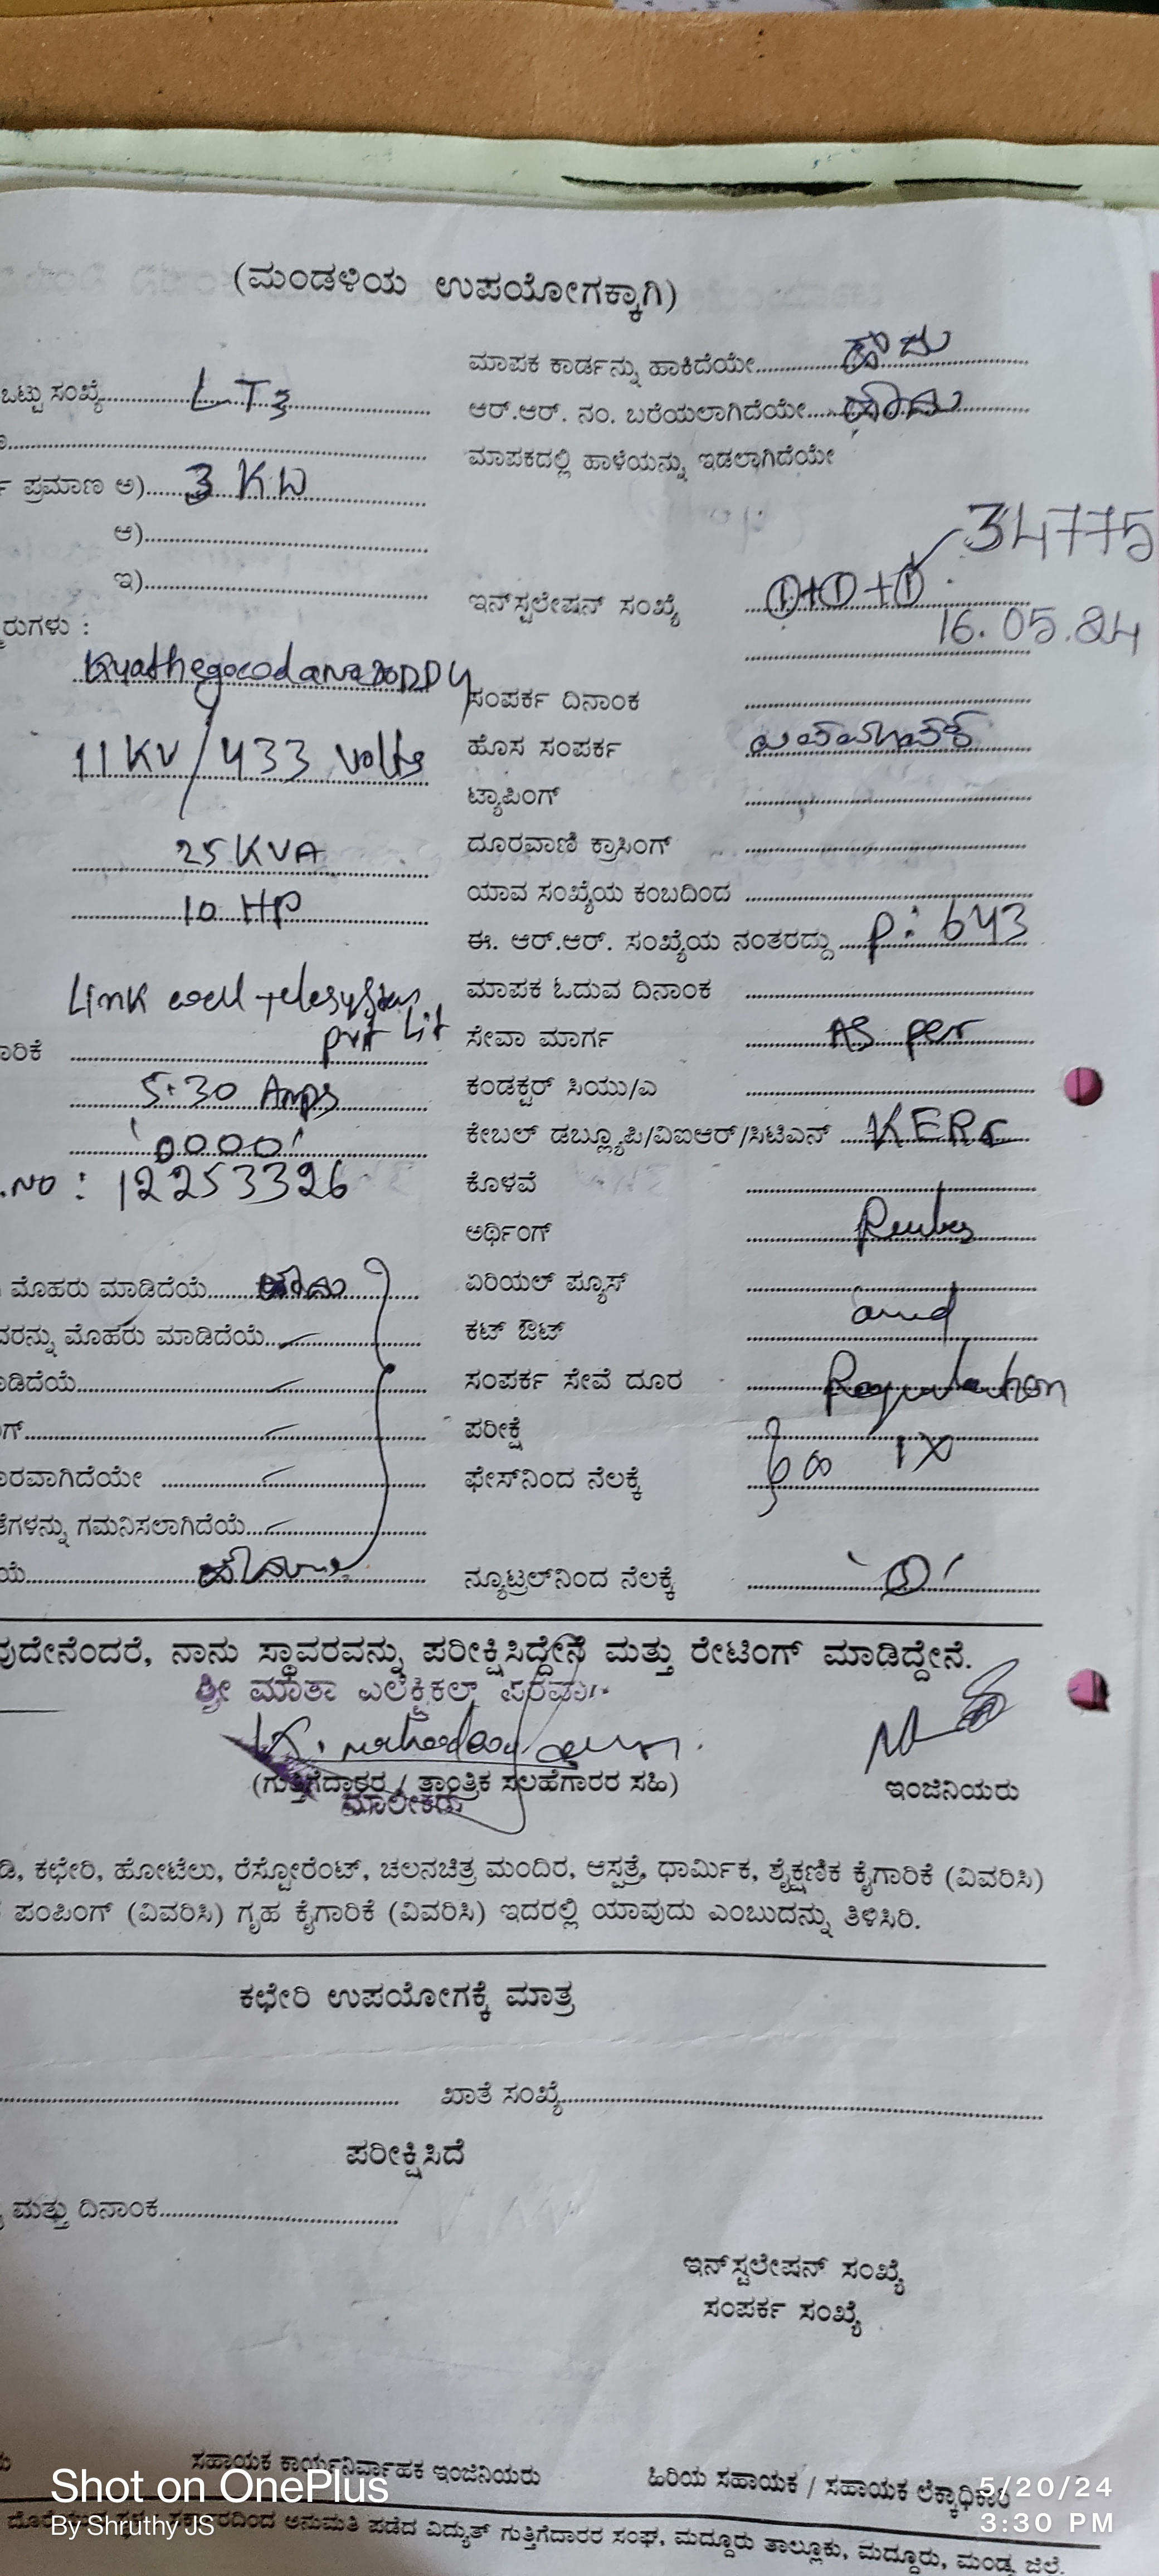 (ಮಂಡಳಿಯ ಉಪಯೋಗಕ್ಕಾಗಿ)
ಮಾಪಕ ಕಾರ್ಡನ್ನು ಹಾಕಿದೆಯೇ ಹೌದು
ಒಟ್ಟು ಸಂಖ್ಯೆ LT3
ಆರ್.ಆರ್. ನಂ. ಬರೆಯಲಾಗಿದೆಯೇ ಹೌದು
ಮಾಪಕದಲ್ಲಿ ಹಾಳೆಯನ್ನು ಇಡಲಾಗಿದೆಯೇ
ಪ್ರಮಾಣ ಅ) 3 KW
ಆ)
ಇ)
34775
ಇನ್‌ಸ್ಟಲೇಷನ್ ಸಂಖ್ಯೆ 1+1+1
16.05.24
ರುಗಳು :
ಸಂಪರ್ಕ ದಿನಾಂಕ
11KV/433 volts
ಹೊಸ ಸಂಪರ್ಕ
ಟ್ಯಾಪಿಂಗ್
25 KVA
ದೂರವಾಣಿ ಕ್ರಾಸಿಂಗ್
10 HP
ಯಾವ ಸಂಖ್ಯೆಯ ಕಂಬದಿಂದ
ಈ. ಆರ್.ಆರ್. ಸಂಖ್ಯೆಯ ನಂತರದ್ದು P: 643
Link well telesystem
ಮಾಪಕ ಓದುವ ದಿನಾಂಕ
pvt Lit
ಸೇವಾ ಮಾರ್ಗ AS per
5-30 Amps
ಕಂಡಕ್ಟರ್ ಸಿಯು/ಎ
'0000'
ಕೇಬಲ್ ಡಬ್ಲ್ಯೂಪಿ/ವಿಐಆರ್/ಸಿಟಿಎನ್ KERC
.NO : 12253326
ಕೊಳವೆ
ಅರ್ಥಿಂಗ್ Rules
ಮೊಹರು ಮಾಡಿದೆಯೆ ಹೌದು
ಏರಿಯಲ್ ಫ್ಯೂಸ್
ವರನ್ನು ಮೊಹರು ಮಾಡಿದೆಯೆ
ಕಟ್ ಔಟ್ and
ಡಿದೆಯೆ
ಸಂಪರ್ಕ ಸೇವೆ ದೂರ Regulation
ಗ್
ಪರೀಕ್ಷೆ
ರವಾಗಿದೆಯೇ
ಫೇಸ್‌ನಿಂದ ನೆಲಕ್ಕೆ
ಗಳನ್ನು ಗಮನಿಸಲಾಗಿದೆಯೆ
ಯೆ
ನ್ಯೂಟ್ರಲ್‌ನಿಂದ ನೆಲಕ್ಕೆ '0'
ವುದೇನೆಂದರೆ, ನಾನು ಸ್ಥಾವರವನ್ನು ಪರೀಕ್ಷಿಸಿದ್ದೇನೆ ಮತ್ತು ರೇಟಿಂಗ್ ಮಾಡಿದ್ದೇನೆ.
ಶ್ರೀ ಮಾತಾ ಎಲೆಕ್ಟ್ರಿಕಲ್ಸ್ ಪರವಾಗಿ
(ಗುತ್ತಿಗೆದಾರರ / ತಾಂತ್ರಿಕ ಸಲಹೆಗಾರರ ಸಹಿ)
ಮಾಲೀಕರು
ಇಂಜಿನಿಯರು
ಡಿ, ಕಛೇರಿ, ಹೋಟೆಲು, ರೆಸ್ಟೋರೆಂಟ್, ಚಲನಚಿತ್ರ ಮಂದಿರ, ಆಸ್ಪತ್ರೆ, ಧಾರ್ಮಿಕ, ಶೈಕ್ಷಣಿಕ ಕೈಗಾರಿಕೆ (ವಿವರಿಸಿ)
ಪಂಪಿಂಗ್ (ವಿವರಿಸಿ) ಗೃಹ ಕೈಗಾರಿಕೆ (ವಿವರಿಸಿ) ಇದರಲ್ಲಿ ಯಾವುದು ಎಂಬುದನ್ನು ತಿಳಿಸಿರಿ.
ಕಛೇರಿ ಉಪಯೋಗಕ್ಕೆ ಮಾತ್ರ
ಖಾತೆ ಸಂಖ್ಯೆ
ಪರೀಕ್ಷಿಸಿದೆ
ಮತ್ತು ದಿನಾಂಕ
ಇನ್‌ಸ್ಟಲೇಷನ್ ಸಂಖ್ಯೆ
ಸಂಪರ್ಕ ಸಂಖ್ಯೆ
ಸಹಾಯಕ ಕಾರ್ಯನಿರ್ವಾಹಕ ಇಂಜಿನಿಯರು
ಹಿರಿಯ ಸಹಾಯಕ / ಸಹಾಯಕ ಲೆಕ್ಕಾಧಿಕಾರಿ
ಅನುಮತಿ ಪಡೆದ ವಿದ್ಯುತ್ ಗುತ್ತಿಗೆದಾರರ ಸಂಘ, ಮದ್ದೂರು ತಾಲ್ಲೂಕು, ಮದ್ದೂರು, ಮಂಡ್ಯ ಜಿಲ್ಲೆ.
Shot on OnePlus
By Shruthy JS
5/20/24
3:30 PM